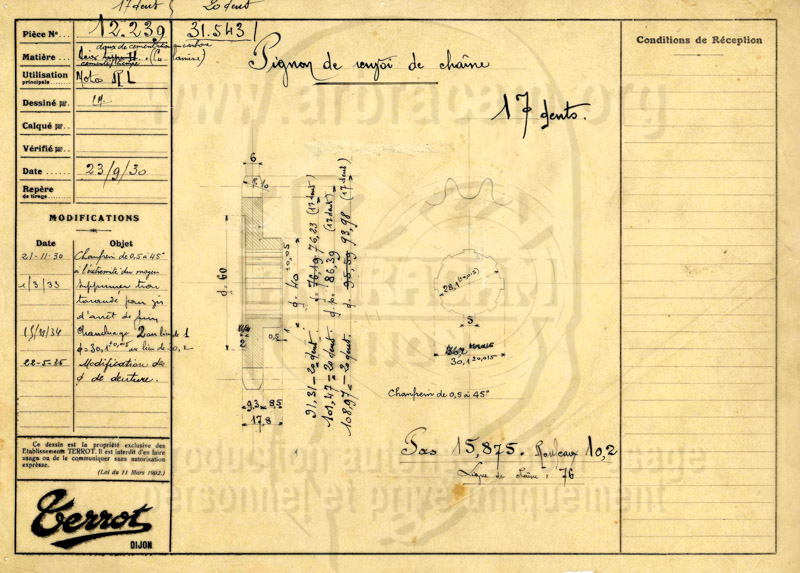 17 dent 20 dent
Pièce N°... 12.239 31.543
Matière...
Utilisation principale... Moto
Dessiné par
Calqué par...
Vérifié par...
Date ...... 23/9/30
Repère de tirage
MODIFICATIONS
Date Objet
21-11-30 Chanfrein de 0,5 à 45°
à l'extrémité du moyeu
1/3/33 Supprimer trou
taraudé pour vis
d'arrêt de
2 au lieu de 1
φ=30,1 ±0,015 au lieu de 30,2
22-5-35 Modification de
φ de denture.
Ce dessin est la propriété exclusive des
Etablissements TERROT. Il est interdit d'en faire
usage ou de le communiquer sans autorisation
expresse.
(Loi du 11 Mars 1902.)
Terrot
DIJON
Pignon de renvoi de chaîne
17 dents.
6
d. 60
d. 40
±0,05
0,5
1
2
9,3 8,5
17,8
91,31 - 20 dent d. 76,19 76,23 (17 dent)
101,47 - 20 dent d. p. 86,39 (17 dent)
108,97 - 20 dent 93,98 (17 dent)
28,1 (±0,015)
5
30,1 ±0,015
Chanfrein de 0,5 à 45°
Pas 15,875. Rouleaux 10,2
Ligne de chaîne : 76
Conditions de Réception
www.arbracam.org
production autorisée pour usage
personnel et privé uniquement